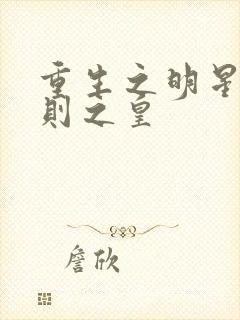 重生之明星
則之皇
詹欣